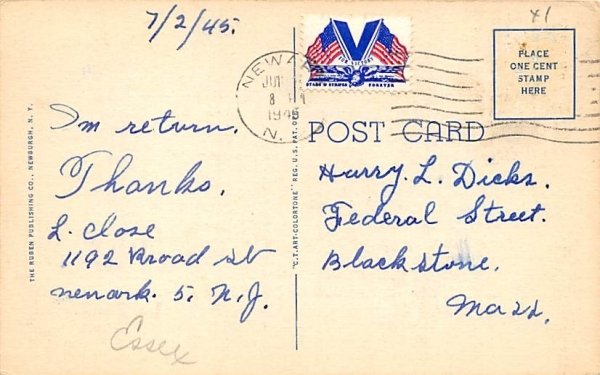 7/2/45.
X1
NEWARK
JUL
8
1945
N.
V
FOR VICTORY
STARS & STRIPES FOREVER
PLACE
ONE CENT
STAMP
HERE
POST CARD
I'm return.
Thanks.
L. Close
1192 Broad St
newark. 5. N.J.
Essex
THE RUBEN PUBLISHING CO., NEWBURGH, N. Y.
"C.T. ART-COLORTONE" REG. U.S. PAT. OFF.
Harry L. Dicks.
Federal Street.
Blackstone.
Mass.